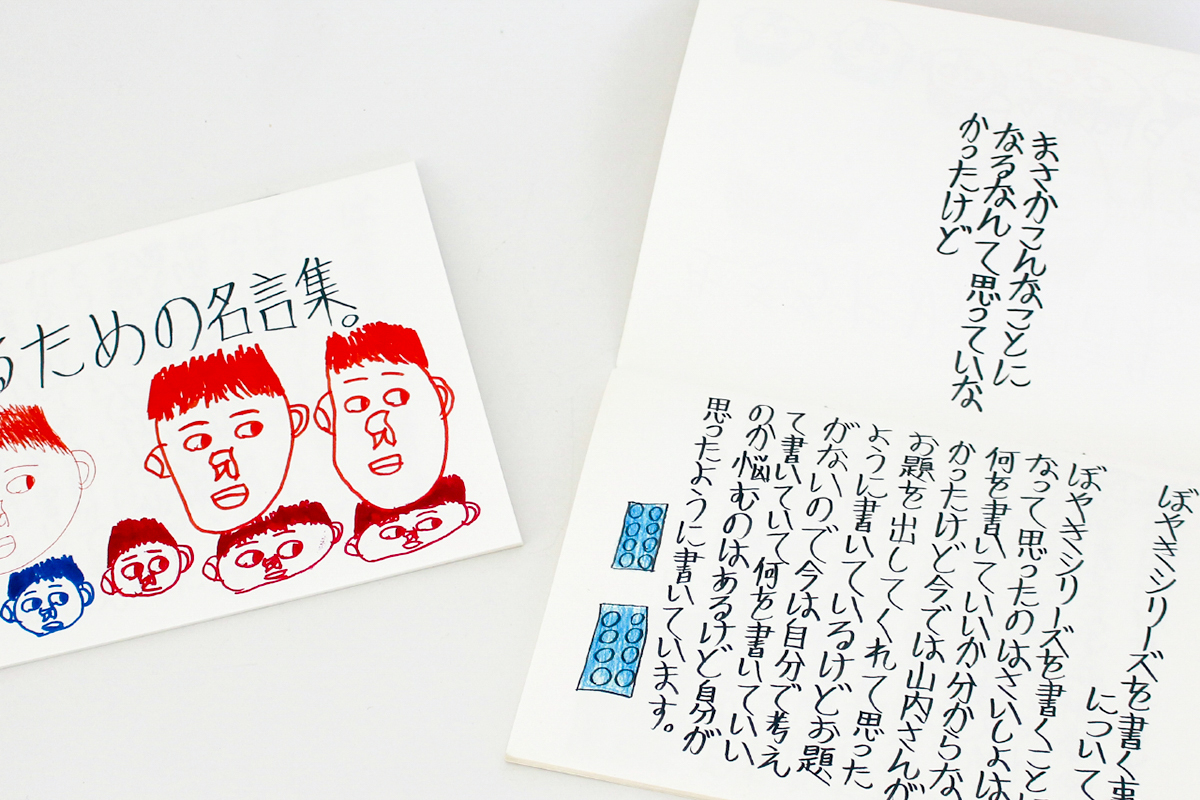 るための名言集。
まさかこんなことに
なるなんて思っていな
かったけど
ぼやきシリーズを書く事
について
ぼやきシリーズを書くことに
なって思ったのはさいしょは
何を書いていいか分からな
かったけど今では山内さんが
お題を出してくれて思った
ように書いているけどお題
がないので今は自分で考え
て書いていて何を書いていい
のか悩むのはあるけど自分が
思ったように書いています。